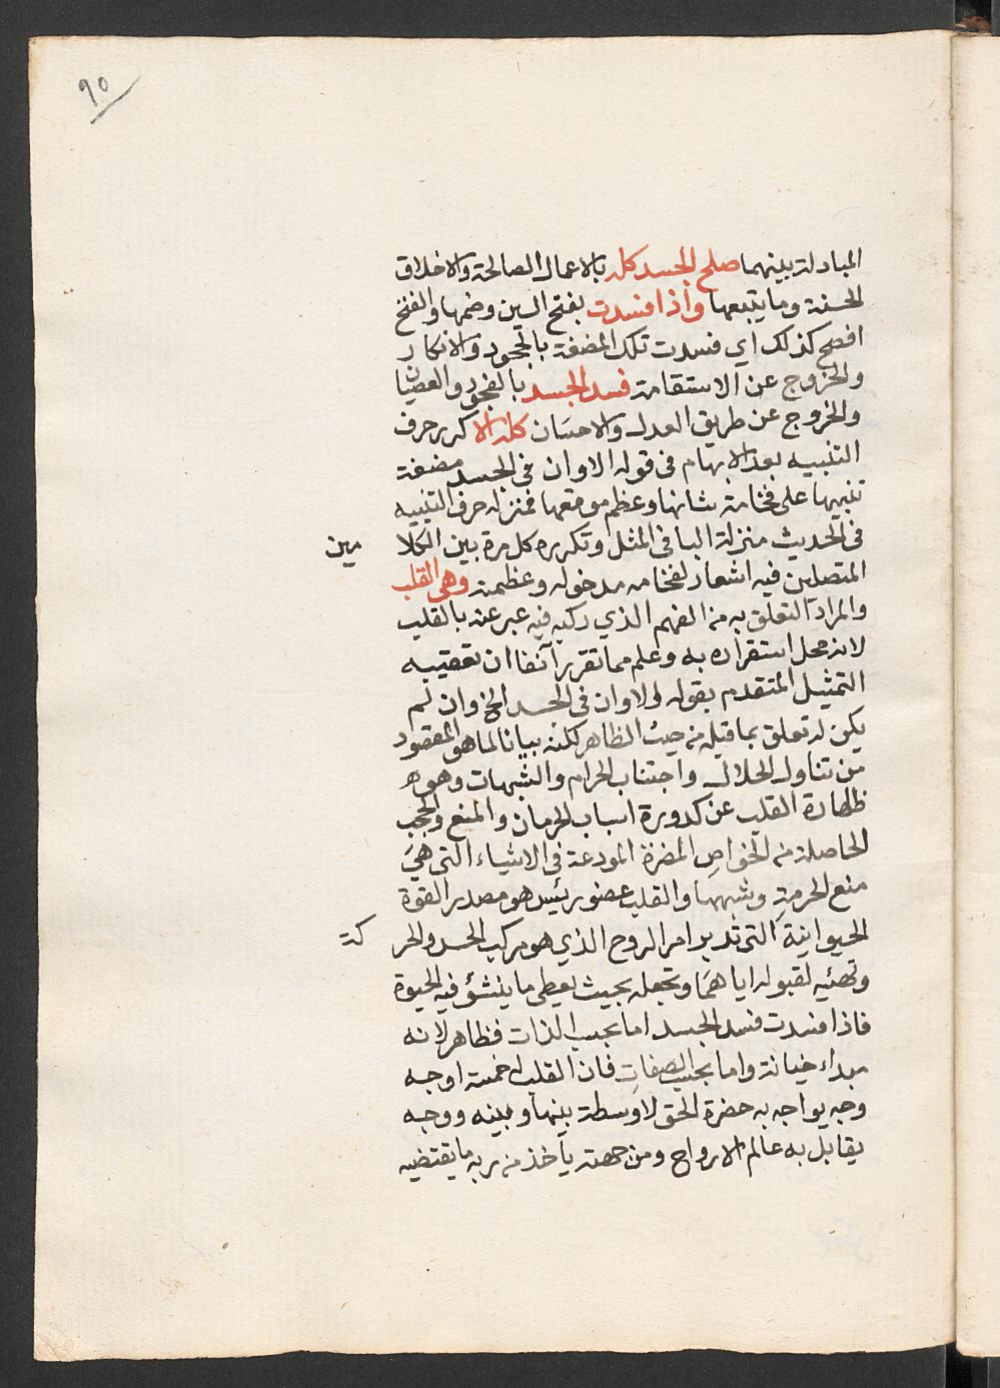 ٩٥
المبادلة بينهما صلح الجسد كله بالاعمال الصالحة والاخلاق
الحسنة وما يتبعها واذا فسدت بفتح السين وضمها والفتح
افصح كذلك اي فسدت تلك المضغة بالجحود والانكار
والخروج عن الاستقامة فسد الجسد بالفجور والعصيان
والخروج عن طريق العدل والاحسان كله الا كرر حرف
التنبيه بعد الابهام في قوله الاوان في الجسد مضغة
تنبيها على فخامة شانها وعظم موقعها فمنزلة حرف التنبيه
في الحديث منزلة البا في المثل وتكريره كل مرة بين الكلا مين
المتصلين فيه اشعار لفخامه مدخوله وعظمته وهي القلب
والمراد التعلق به من الفهم الذي ركبه فيه عبر عنه بالقلب
لانه محل استقراره به وعلم مما تقرر آنفا ان تعقيبه
التمثيل المتقدم بقوله اولا وان في الجسد الخ وان لم
يكن له تعلق بما قبله من حيث الظاهر لكنه بيانا لما هو المقصود
من تناول الحلال واجتناب الحرام والشبهات وهو
طهارة القلب عن كدورة اسباب الحرمان والمنع والحجب
الحاصلة من الخواص المضرة المودعة في الاشياء التي هي
منع الحرمة وشبهها والقلب عضو رئيس هو مصدر القوة
الحيوانية التي تدبر امر الروح الذي هو مركب الحس والحر كة
وتهئيه لقبوله اياهما وتجعله بحيث يعطي ما ينشؤ فيه الحيوة
فاذا فسدت فسد الجسد اما بحسب الذات فظاهر لانه
مبداء خيانة واما بحسب الصفات فان القلب له خمسة اوجه
وجه يواجه به حضرة الحق لا وسطة بينها وبينه ووجه
يقابل به عالم الارواح ومن جهته ياخذ من ربه ما يقتضيه